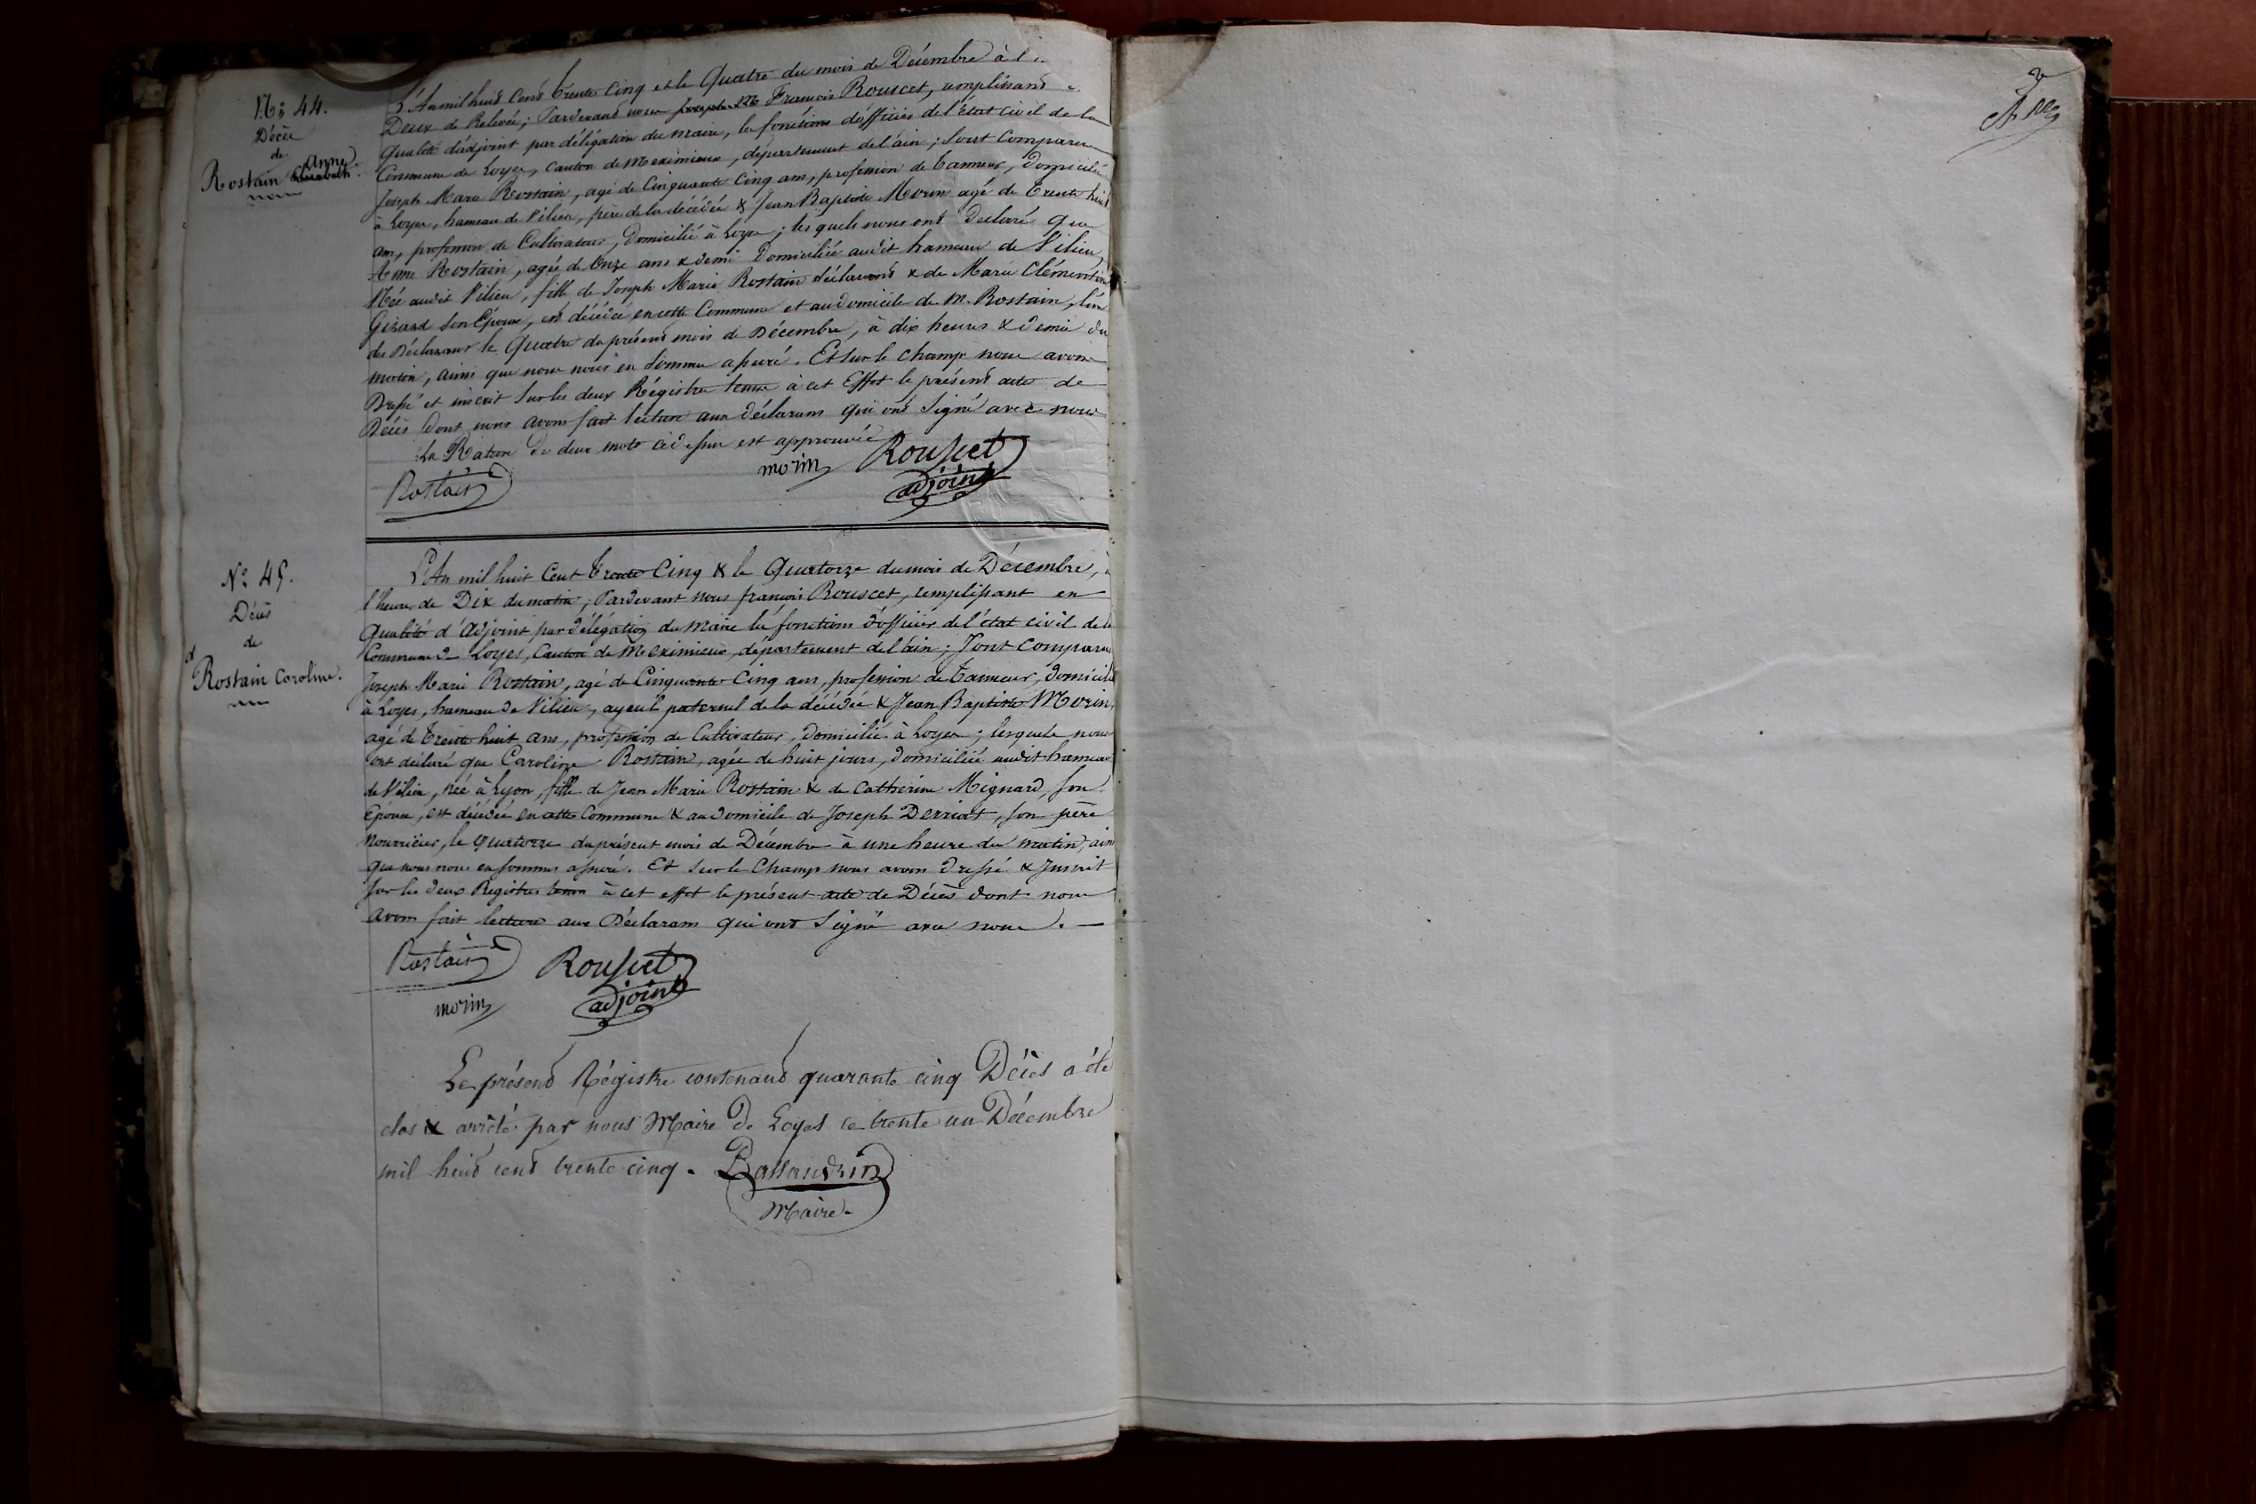 N.º 44.
Décès
de
Anne
Rostain Elisabeth.
L'An mil huit cent trente cinq et le Quatre du mois de Décembre à l'
Deux de Relevée; Pardevant nous François Rouscet, remplissant
Qualité d'adjoint par délégation du maire, les fonctions d'officier de l'état civil de la
Commune de Loyes, canton de Meximieux, département de l'ain; Sont Comparu
Joseph Marie Rostain, agé de Cinquante Cinq ans, profession de Tanneur, Domicilié
à Loyes, hameau de Vilieu, père de la décédée & Jean Baptiste Morin agé de Trente huit
ans, profession de Cultivateur, Domicilié à Loyes; lesquels nous ont Déclaré que
Anne Rostain, agée de Onze ans & demi Domiciliée audit hameau de Vilieu,
Née audit Vilieu, fille de Joseph Marie Rostain déclarant & de Marie Clémentine
Girard son Epouse, est décédée en cette Commune et au domicile de M. Rostain, l'un
des Déclarans le Quatre du présent mois de Décembre, à dix heures & demie du
matin, ainsi que nous nous en sommes assuré. Et sur le champ nous avons
Dressé et inscrit sur les deux Régistres tenus à cet Effet le présent acte de
Décès dont nous avons fait lecture aux déclarans qui ont Signé avec nous
La Rature de deux mots ci dessus est approuvée
Rostain morin Rousset
adjoint
N.º 45.
Décès
de
Rostain Caroline.
L'An mil huit Cent Trente Cinq & le Quatorze du mois de Décembre, à
l'heure de Dix du matin; Pardevant nous françois Rouscet, remplissant en
Qualité d'Adjoint par délégation du Maire les fonctions d'officier de l'état civil de la
Commune de Loyes, Canton de Meximieux, département de l'ain; Sont Comparu
Joseph Marie Rostain, agé de Cinquante Cinq ans, profession de Tanneur, domicilié
à Loyes, hameau de Vilieu, ayeul paternel de la décédée & Jean Baptiste Morin,
agé de Trente huit ans, profession de Cultivateur, Domicilié à Loyes; lesquels nous
ont déclaré que Caroline Rostain, agée de huit jours, domiciliée audit hameau
de Vilieu, née à Lyon, fille de Jean Marie Rostain & de Catherine Mignard, son
Epouse, est décédée en cette Commune & au domicile de Joseph Derriat, son père
Nourricier, le Quatorze du présent mois de Décembre à une heure du matin, ain
que nous nous en sommes assuré. Et sur le Champ nous avons Dressé & Inscrit
sur les deux Registres tenus à cet effet le présent acte de Décès dont nous
avons fait lecture aux Déclarans qui ont Signé avec nous.
Rostain Rousset
morin adjoint
Le présent Régistre contenant quarante cinq Décès a été
clos & arrêté par nous Maire de Loyes ce trente un Décembre
mil huit cent trente cinq. Bassandrin
Maire